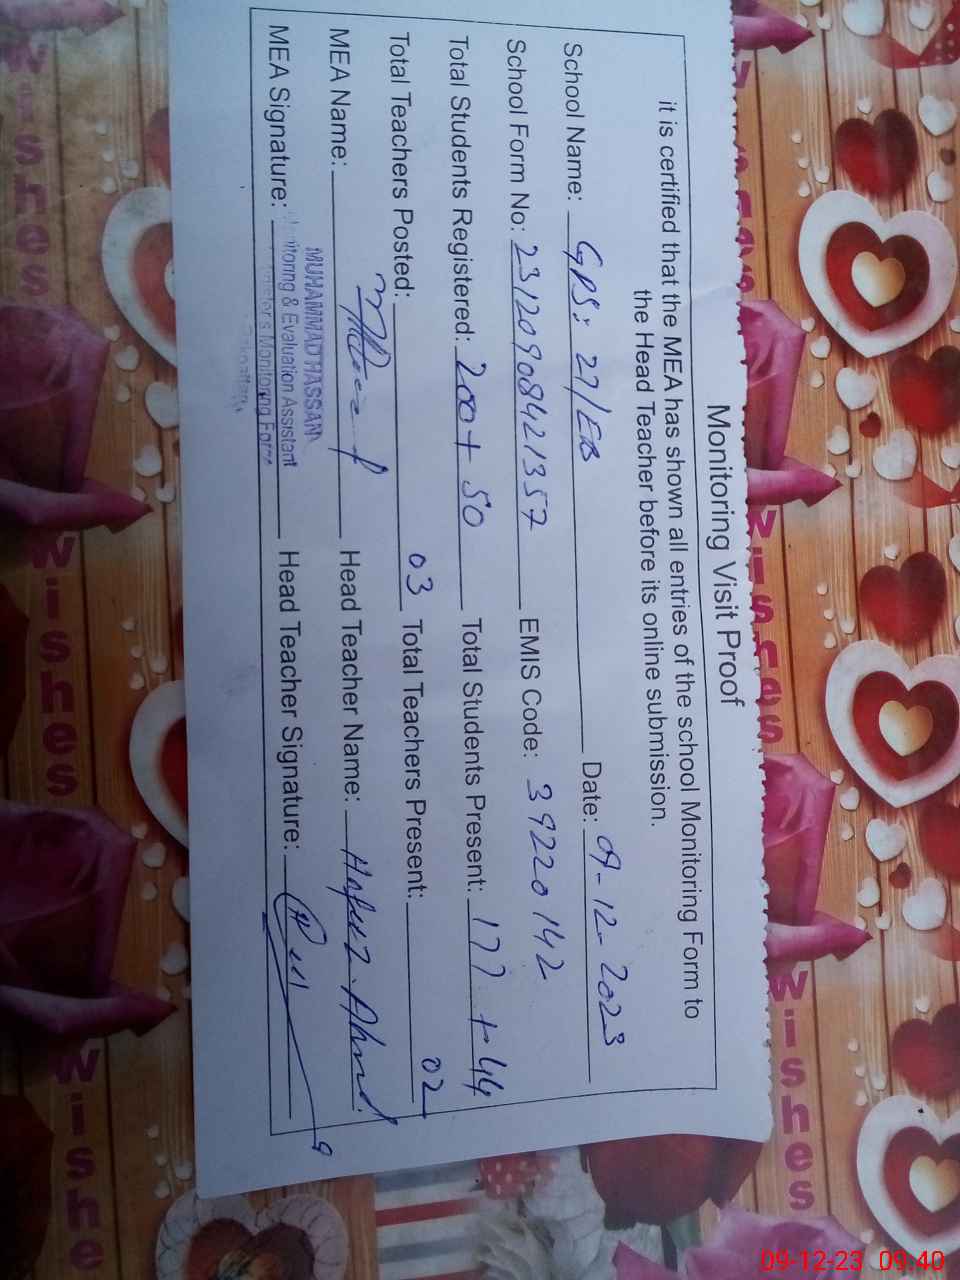 Monitoring Visit Proof
it is certified that the MEA has shown all entries of the school Monitoring Form to
the Head Teacher before its online submission.
School Name: GPS: 27/EB Date: 09-12-2023
School Form No: 23120908421357 EMIS Code: 39220142
Total Students Registered: 200 + 50 Total Students Present: 177 + 44
Total Teachers Posted: 03 Total Teachers Present: 02
MEA Name: Head Teacher Name: Hafiz Ahmd
MUHAMMAD HASSAN
Monitoring & Evaluation Assistant
Monitoring Force
MEA Signature: Head Teacher Signature:
Wishes
Wishes
Wishes
Wishes
Wishe
09-12-23 09:40